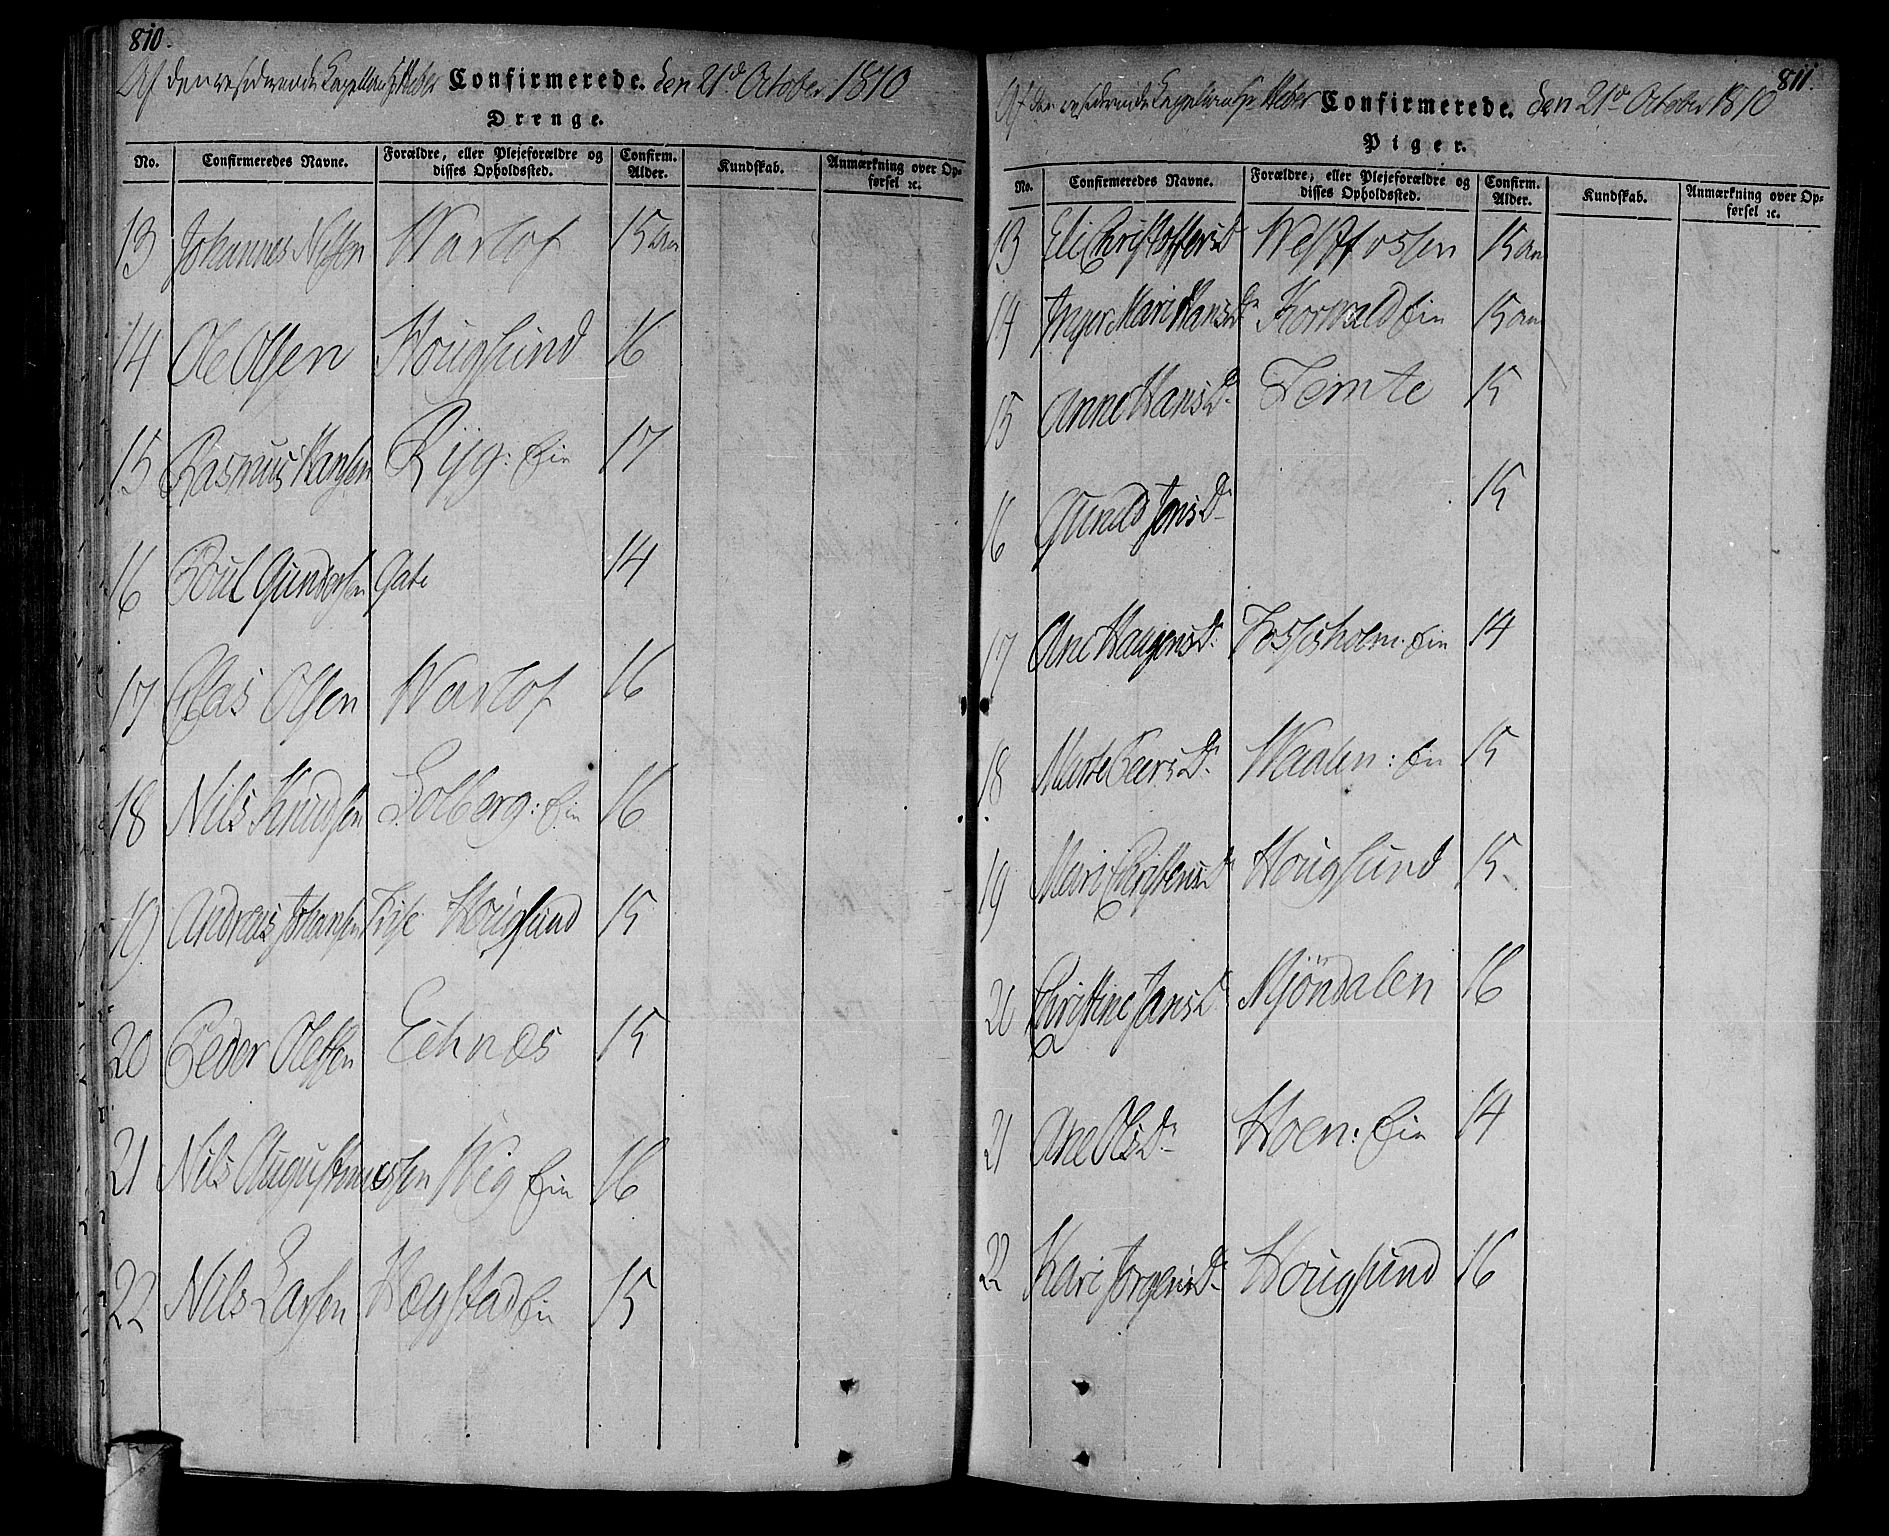 810.
Af den residerende Capellan Hr Heber Confirmerede. den 21d October 1810
Drenge.
No. Confirmeredes Navne. Forældre, eller Plejeforældre og disses Opholdssted. Confirm. Alder. Kundskab. Anmærkning over Opførsel ɔc.
13 Johannes Nilsen Warlof 15 aar
14 Ole Olsen Houglund 16
15 Rasmus Hansen Ryg: Ein 17
16 Poul Gundersen Gate 14
17 Clas Olsen Warlof 16
18 Nils Knudsen Solberg: Ein 16
19 Andreas Johansen Frise Hougsund 15
20 Peder Olessen Echnæs 15
21 Nils Augustinussen Wig Ein 16
22 Nils Larsen Hægstad Ein 15
811.
Af den residerende Capellan Hr Heber Confirmerede. den 21d October 1810
Piger.
No. Confirmeredes Navne. Forældre, eller Plejeforældre og disses Opholdssted. Confirm. Alder. Kundskab. Anmærkning over Opførsel ɔc.
13 Eli Christoffersd Westfossen 15 aar
14 Inger Mari Hansdr Horwald Ein 15 aar
15 Anne HansD. Temte 15
16 Gunild JensD. 15
17 Ane HaagensD. Fossesholm: Ein 14
18 Marte PeersD. Waalen: Ein 15
19 Mari ChristensD. Hougsund 15
20 Christine JansD. Mjöndalen 16
21 Ane OlsD. Hoen: Ein 14
22 Kari JörgensD. Hougsund 16